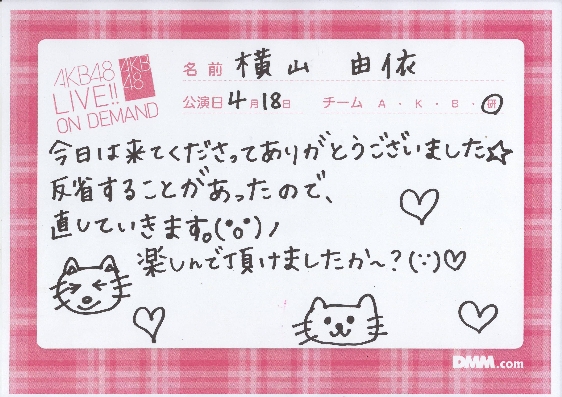 AKB48
LIVE!!
ON DEMAND
AKB
48
名前 横山 由依
公演日 4月18日 チーム A・K・B・研
今日は来てくださってありがとうございました☆
反省することがあったので、
直していきます。(°o°)ノ
楽しんで頂けましたか〜?(:・)♡
DMM.com